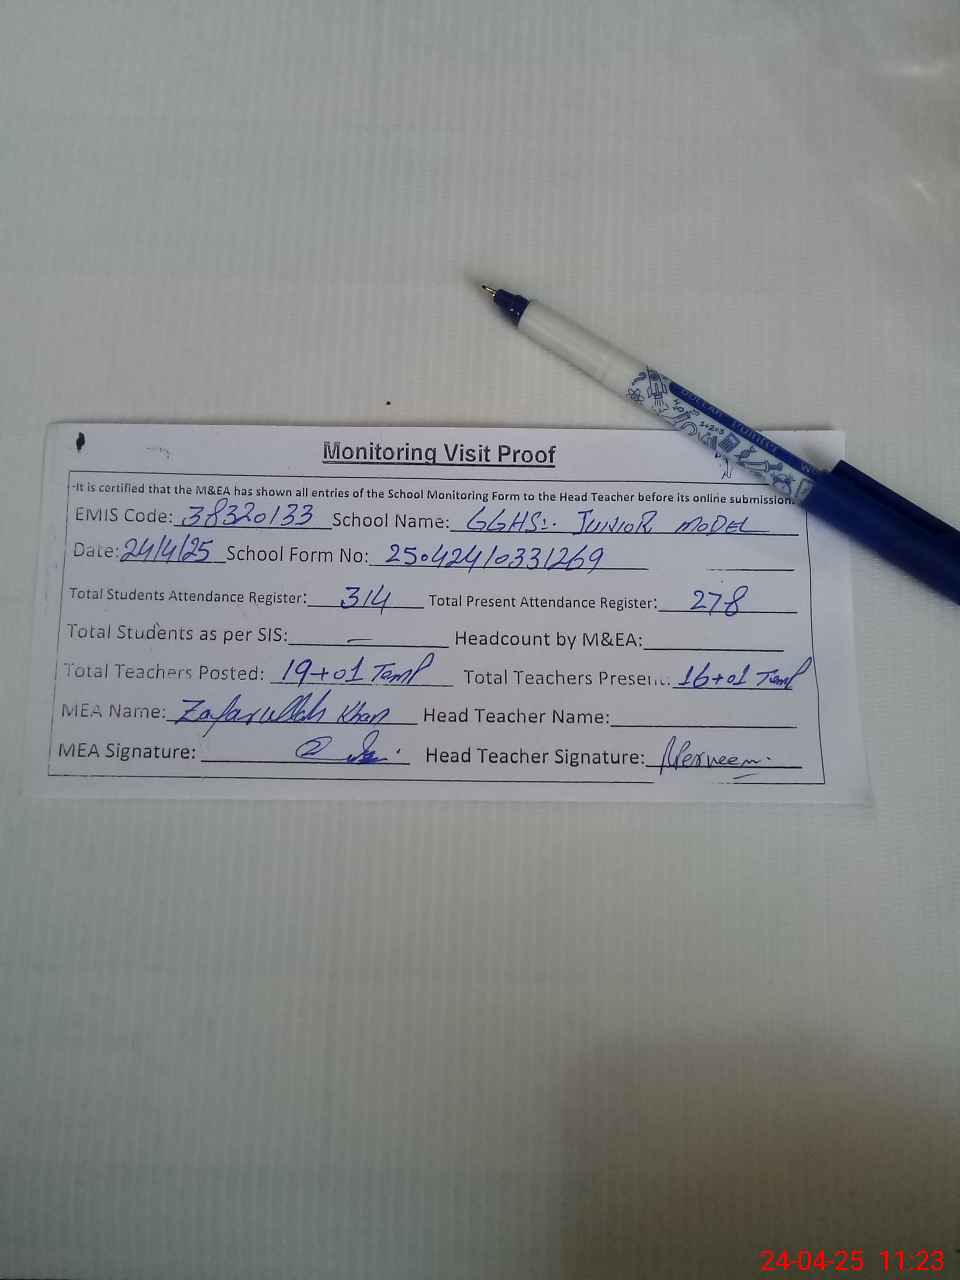 Monitoring Visit Proof
-It is certified that the M&EA has shown all entries of the School Monitoring Form to the Head Teacher before its online submission.
EMIS Code: 38320133 School Name: GGHS:. JUNIOR MODEL
Date: 24/4/25 School Form No: 25042410331269
Total Students Attendance Register: 314 Total Present Attendance Register: 278
Total Students as per SIS: — Headcount by M&EA:
Total Teachers Posted: 19+01 Temp Total Teachers Present: 16+01 Temp
MEA Name: Zafarullah Khan Head Teacher Name:
MEA Signature: Head Teacher Signature: Perveen.
DOLLAR Pointer
24-04-25 11:23